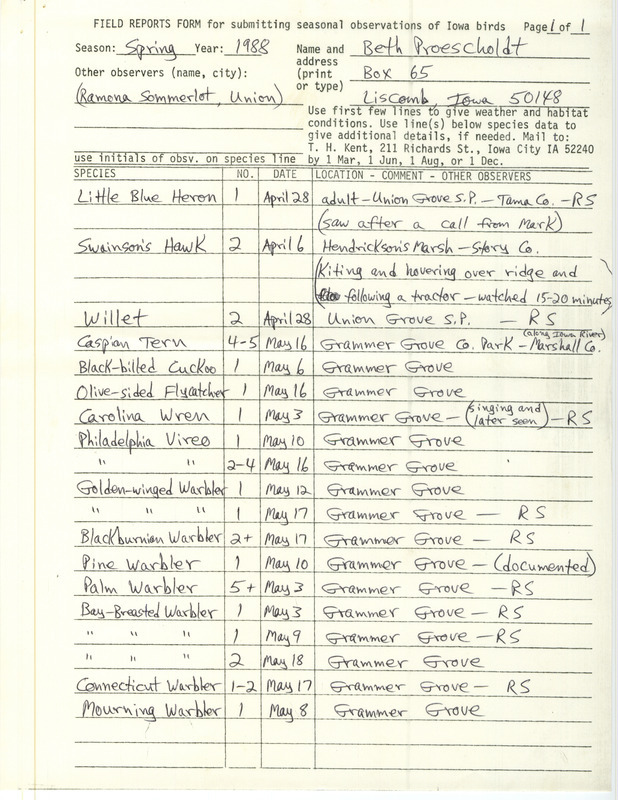 FIELD REPORTS FORM for submitting seasonal observations of Iowa birds Page 1 of 1
Season: Spring Year: 1988 Name and Beth Proescholdt
address
Other observers (name, city): (print Box 65
or type)
(Ramona Sommerlot, Union) Liscomb, Iowa 50148
Use first few lines to give weather and habitat
conditions. Use line(s) below species data to
give additional details, if needed. Mail to:
T. H. Kent, 211 Richards St., Iowa City IA 52240
use initials of obsv. on species line by 1 Mar, 1 Jun, 1 Aug, or 1 Dec.
SPECIES NO. DATE LOCATION - COMMENT - OTHER OBSERVERS
Little Blue Heron 1 April 28 adult - Union Grove S.P. - Tama Co. - RS
(saw after a call from Mark)
Swainson's Hawk 2 April 6 Hendrickson's Marsh - Story Co.
(Kiting and hovering over ridge and
following a tractor - watched 15-20 minutes)
Willet 2 April 28 Union Grove S.P. - RS
(along Iowa River)
Caspian Tern 4-5 May 16 Grammer Grove Co. Park - Marshall Co.
Black-billed Cuckoo 1 May 6 Grammer Grove
Olive-sided Flycatcher 1 May 16 Grammer Grove
Carolina Wren 1 May 3 Grammer Grove - (singing and later seen) - RS
Philadelphia Vireo 1 May 10 Grammer Grove
" " 2-4 May 16 Grammer Grove
Golden-winged Warbler 1 May 12 Grammer Grove
" " " 1 May 17 Grammer Grove - RS
Blackburnian Warbler 2+ May 17 Grammer Grove - RS
Pine Warbler 1 May 10 Grammer Grove - (documented)
Palm Warbler 5+ May 3 Grammer Grove - RS
Bay-Breasted Warbler 1 May 3 Grammer Grove - RS
" " " 1 May 9 Grammer Grove - RS
" " " 2 May 18 Grammer Grove
Connecticut Warbler 1-2 May 17 Grammer Grove - RS
Mourning Warbler 1 May 8 Grammer Grove